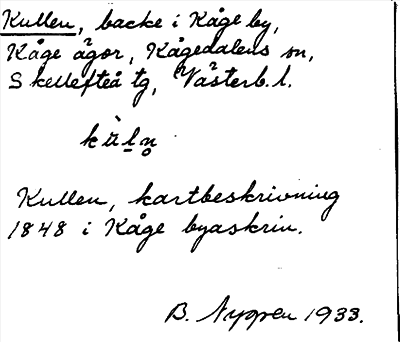 Kullen, backe i Kåge by,
Kåge ägor, Kågedalens sn,
Skellefteå tg, Västerb. l.
Kullen, kartbeskrivning
1848 i Kåge byaskrin.
B. Nygren 1933.